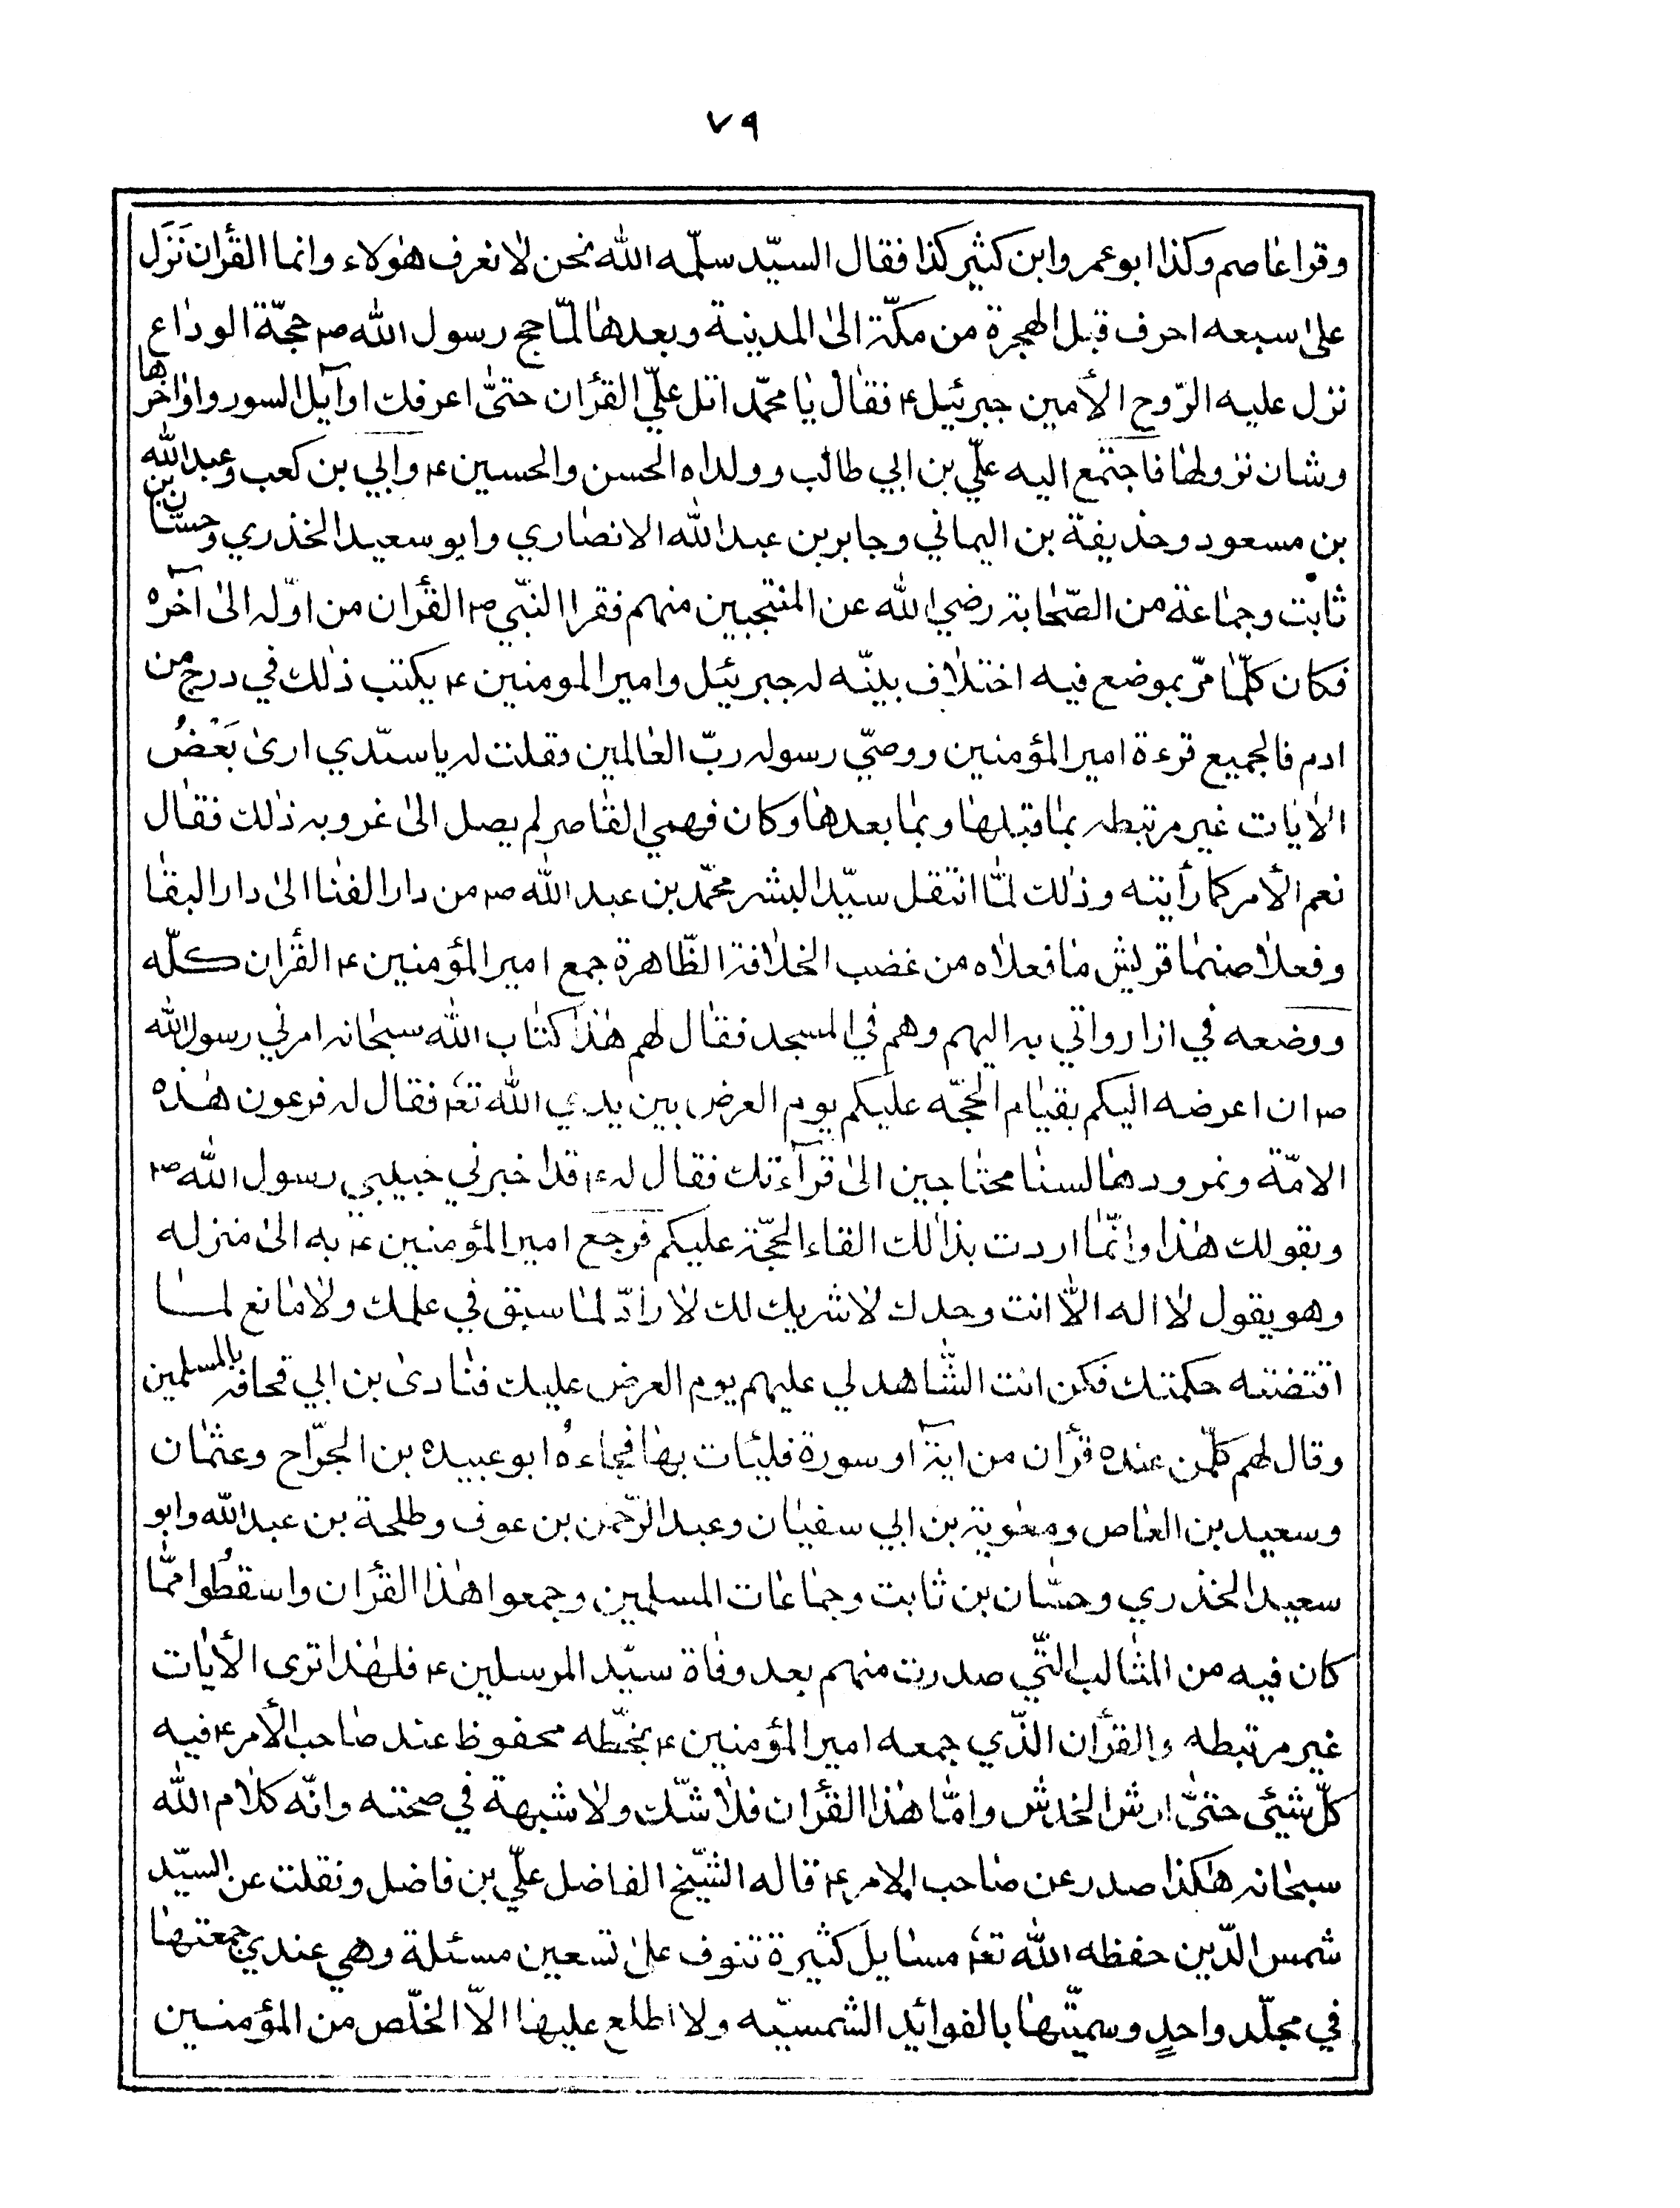 ٧٩
وقرا عاصم وكذا ابو عمر وابن كثير كذا فقال السيّد سلّمه الله نحن لا نعرف هؤلاء وانما القرأن نَزَل
على سبعه احرف قبل الهجرة من مكّة الى المدينة وبعدها لمّا حج رسول الله ص حجّة الوداع
نزل عليه الرّوح الأمين جبرئيل ع فقال يا محمّد اتل علّي القرأن حتىّ اعرفك اوآيل السور واواخرها
وشان نزولها فاجتمع اليه علّي بن ابي طالب وولداه الحسن والحسين ع وابي بن كعب وعبد الله
بن مسعود وحذيفة بن اليماني وجابر بن عبد الله الانصاري وابو سعيد الخذري وحسّان بن
ثابت وجماعة من الصّحابة رضي الله عن المنتجبين منهم فقرا النبّي ص القرأن من اوّله الى آخره
فكان كلّما مرّ بموضع فيه اختلاف بينّه له جبرئيل وامير المومنين ع يكتب ذلك في درج من
ادم فالجميع قرءة امير المؤمنين ووصّي رسول ربّ العالمين فقلت له يا سيّدي ارى بَعْضُ
الايات غير مرتبطه بما قبلها وبما بعدها وكان فهمي القاصر لم يصل الى غروبه ذلك فقال
نعم الأمر كما رأيته وذلك لمّا انتقل سيّد البشر محمّد بن عبد الله ص من دار الفنا الى دار البقا
وفعلا صنما قريش ما فعلاه من غضب الخلافة الظّاهرة جمع امير المؤمنين ع القرأن كلّه
ووضعه في ازار واتي به اليهم وهم في المسجد فقال لهم هذا كتاب الله سبحانه امرني رسول الله
ص ان اعرضه اليكم بقيام الحجّه عليكم يوم العرض بين يدي الله تع فقال له فرعون هذه
الامّة ونمرودها لسنا محتاجين الى قرآءتك فقال له ع قد اخبرني حبيبي رسول الله ص
وبقولك هذا وانّما اردت بذالك القاء الحجّة عليكم فرجع امير المؤمنين ع به الى منزله
وهو يقول لا اله الاّ انت وحدك لا شريك لك لا رادّ لما سبق في علمك ولا مانع لما
اقتضته حكمتك فكن انت الشّاهد لي عليهم يوم العرض عليك فنادى بن ابي قحافه بالمسلمين
وقال لهم كلّمن عنده قرأن من اية او سورة فليئات بها فجاءهُ ابو عبيده بن الجرّاح وعثمان
وسعيد بن العاص ومعوية بن ابي سفيان وعبد الرّحمن بن عوف وطلحة بن عبد الله وابو
سعيد الخذري وحسّان بن ثابت وجماعات المسلمين وجمعوا هذا القرأن واسقطُوا ممّا
كان فيه من المثالب التّي صدرت منهم بعد وفاة سيّد المرسلين ع فلهذا ترى الأيات
غير مرتبطه والقرأن الذّي جمعه امير المؤمنين ع بخّطه محفوظ عند صاحب الأمر ع فيه
كلّ شيئى حتىّ ارش الخدش وامّا هذا القرأن فلا شّك ولا شبهة في صحته وانّه كلام الله
سبحانه هكذا صدر عن صاحب الامر ع قاله الشّيخ الفاضل علّي بن فاضل ونقلت عن السيّد
شمس الدّين حفظه الله تع مسايل كثيرة تنوف على تسعين مسئلة وهي عندي جمعتها
في مجلّد واحدٍ وسميّتها بالفوائد الشمسيّه ولا اطلع عليها الاّ الخلّص من المؤمنين